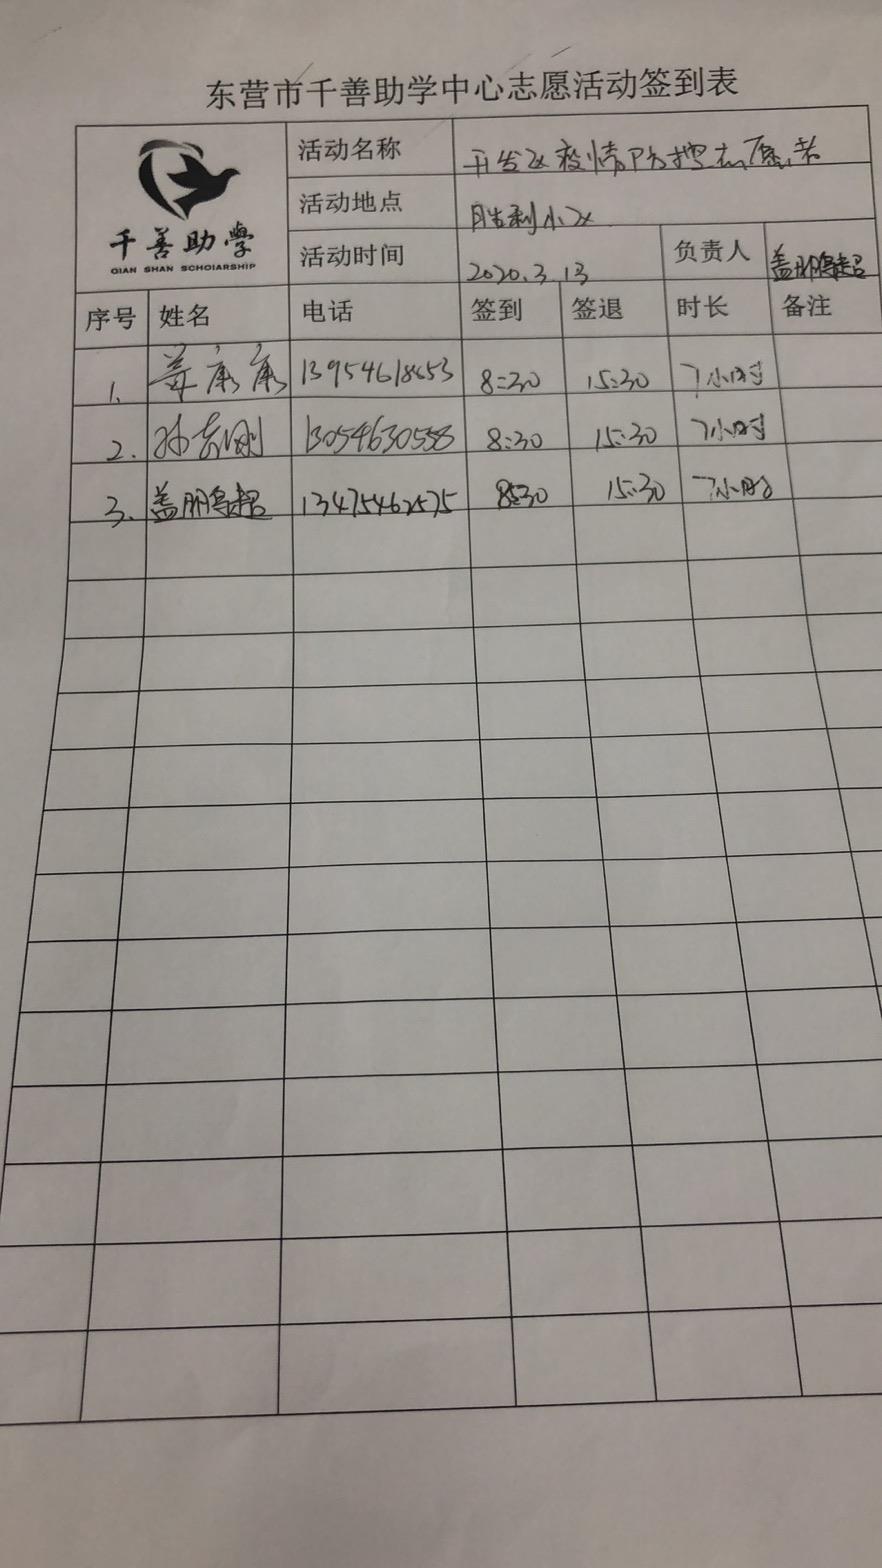 东营市千善助学中心志愿活动签到表
千善助学
QIAN SHAN SCHOIARSHIP
活动名称 开发区疫情防控志愿者
活动地点 胜利小区
活动时间 2020.3.13 负责人 盖鹏超
序号 姓名 电话 签到 签退 时长 备注
1. 康康 13954618653 8:30 15:30 7小时
2. 孙志刚 13054630558 8:30 15:30 7小时
3. 盖鹏超 13475462575 8:30 15:30 7小时